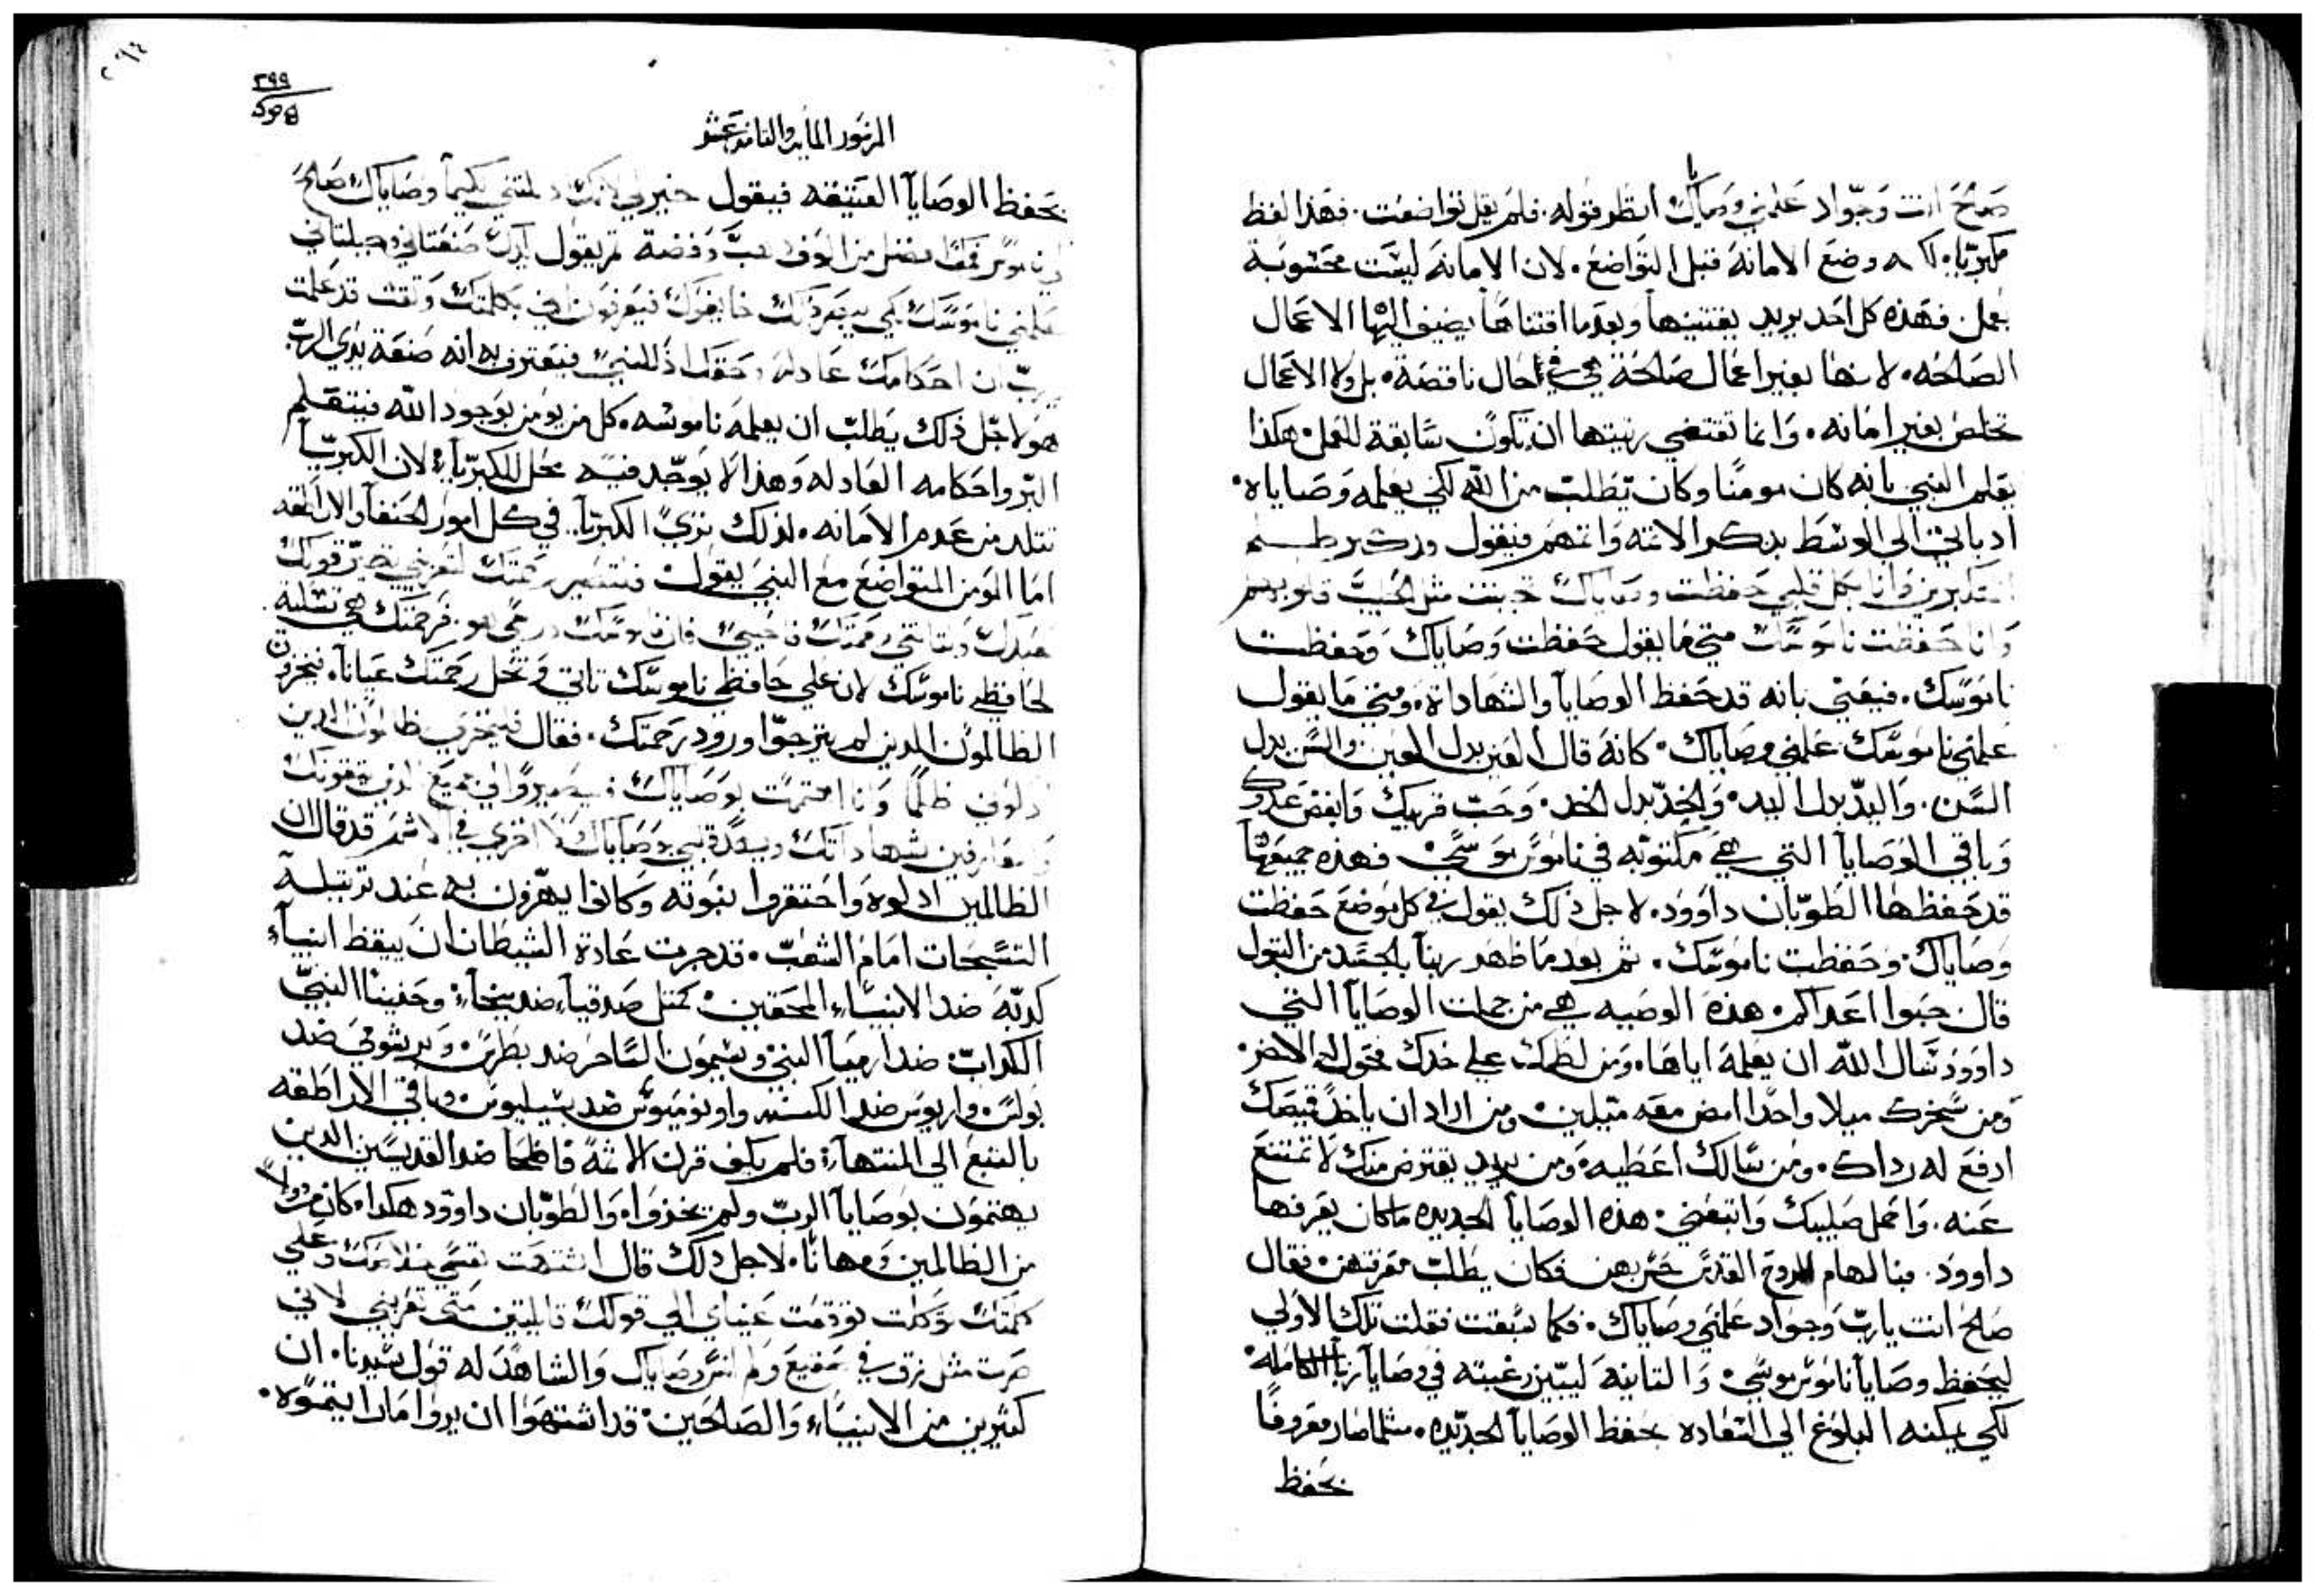 صالح انت وجواد علمني وصاياك انظر قوله. فلم يقل تواضعت. فهذا لفظ
وضع الامانة قبل التواضع. لان الامانة ليست محسوبة
بعمل. فهذه كل احد يريد يقتنيها وبعدما اقتناها يضيف اليها الاعمال
الصالحه. لانها بغير اعمال صالحة هي في حال ناقصة. بل ولا الاعمال
تخلص بغير امانه. وانما تقتضي رتبتها ان تكون سابقة للعمل. هكذا
يعلم النبي بانه كان مومنًا وكان يطلب من الله لكي يعلمه وصاياه.
الى الوسط بذكر الائمه واثمهم فيقول
المتكبرين وانا بكل قلبي حفظت وصاياك تجبنت مثل الحليب قلوبهم
وانا حفظت ناموسك متي ما يقول حفظت وصاياك وحفظت
ناموسك. فيعني بانه قد حفظ الوصايا والشهاداة. ومتي ما يقول
علمني ناموسك علمني وصاياك. كانه قال العين بدل العين والسن بدل
السن. واليد بدل اليد. والخد بدل الخد. وحب قريبك وابغض عدوك
وباقي الوصايا التي هي مكتوبه في ناموس موسي. فهذه جميعها
قد حفظها الطوبان داوود. لاجل ذلك يقول في كل موضع حفظت
وصاياك. وحفظت ناموسك. ثم بعد ما ظهر ربنا بالجسد من البتول
قال حبوا اعداكم. هذه الوصيه هي من جملت الوصايا التي
داوود سال الله ان يعلمه اياها. ومن لطمك علي خدك فحول له الاخر.
ومن سخرك ميلا واحدا امض معه ميلين. ومن اراد ان ياخذ قميصك
ادفع له رداك. ومن سالك اعطيه. ومن يريد يقترض منك لا تمتنع
عنه. واحمل صليبك واتبعني. هذه الوصايا الجديده ما كان يعرفها
داوود. فبالهام الروح القدس حس بهن فكان يطلب معرفتهن. فقال
صالح انت يارب وجواد علمني وصاياك. فكما سبقت فقلت تلك الاولي
ليحفظ وصايا ناموس موسي. والثانيه ليبين رغبته في وصايا ربنا الكامله.
لكي يمكنه البلوغ الى السعاده بحفظ الوصايا الجديده. مثلما صار معروفًا
بحفظ
٢٩٩
المزمور المايه والثامن عشر
بحفظ الوصايا العتيقه فيقول خير لي لانك وصاياك صالح
لي ناموس فمك افضل من الوف ذهب وفضة ثم يقول يداك صنعتاني وجبلتاني
ناموسك لكي خايفوك بكلمتك وثقت قد علمت
يا رب ان احكامك عادله النبي فيعترف به انه صنعة يدي الرب
هو لاجل ذلك يطلب ان يعلمه ناموسه. كل من يومن بوجود الله فيتعلم
البر واحكامه العادله وهذا لا يوجد فيه محل للكبريا لان الكبريا
تتلد من عدم الامانه. لذلك نري الكبريا في كل امور الحنفا والاراطقه
اما المومن المتواضع مع النبي يقول فلتصير رحمتك لتعزيني نظير قولك
لعبدك وتاتيني رحمتك فاحيى فان ناموسك درسي هو. فرحمتك هي تسلية
لحافظي ناموسك لان علي حافظي ناموسك تاتي وتحل رحمتك عيانا. فيخزون
الظالمون الذين لم يترجوا ورود رحمتك. فقال فليخزي الظالمون الذين
اذلوني ظلما وانا اهتممت بوصاياك الذين يتقونك
وعارفين شهاداتك قلبي بوصاياك لا اخزي قد قال ان
الظالمين اذلوه واحتقروا بنبوته وكانوا يهزون به عند ترتيله
التسبحات امام الشعب. قد جرت عادة الشيطان ان يبقظ انبياء
كدبة ضد الانبياء المحقين. كمثل صدقيا ضد ميخا. وحنينا النبي
الكداب ضد ارميا النبي وسيمون الساحر ضد بطرس. وبريشوع ضد
بولس. واريوس ضد الكسندروس واونوميوس ضد بسيليوس. وباقي الاراطقه
بالتتبع الي المنتها. فلم يكف قرن الاثمه قاطحا ضد القديسين الذين
يهتمون بوصايا الرب ولم يخزوا. والطوبان داوود هكذا كان مردولا
من الظالمين ومهانًا. لاجل ذلك قال اشتهت نفسي خلاصك وعلي
كلمتك توكلت عيناي الي قولك قايلتين متي تعزيني لاني
صرت مثل زق في صقيع ولم انس وصاياك والشاهد له قول سيدنا. ان
كثيرين من الانبياء والصالحين. قد اشتهوا ان يروا ما رايتموه.